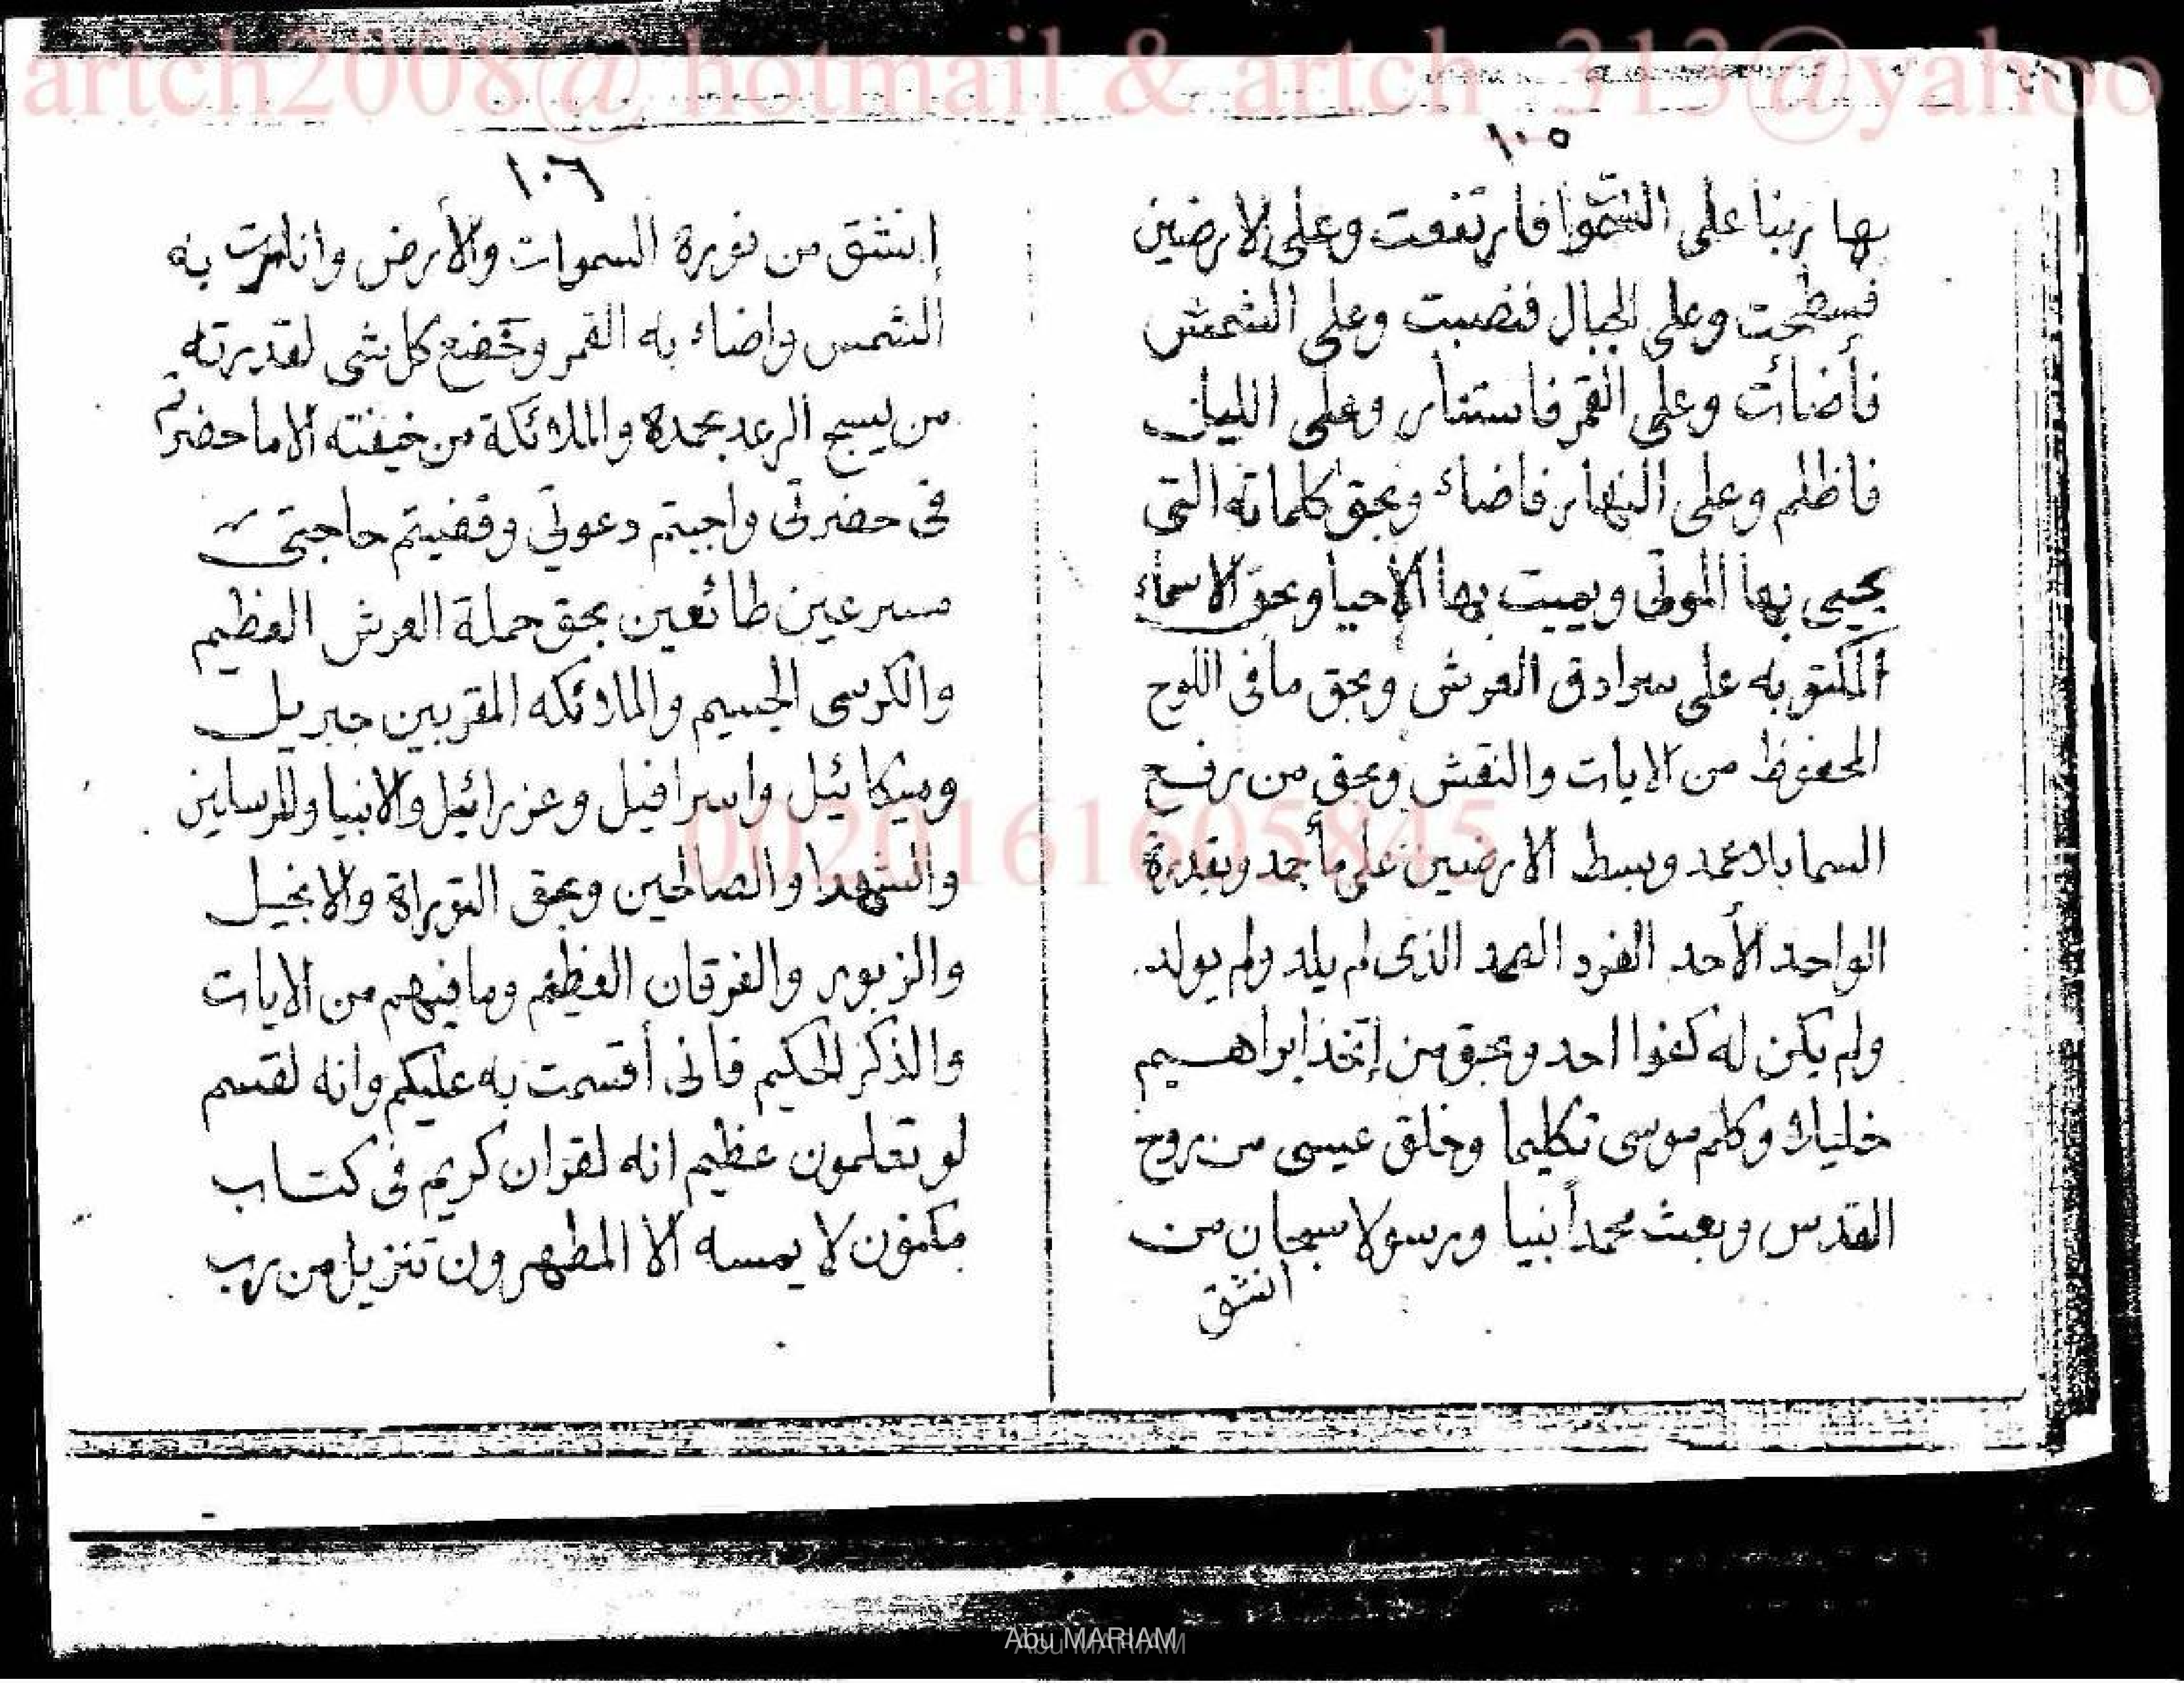 artch2008@ hotmail & artch_313@yahoo
١٠٥
بها ربنا على السموا فارتفعت وعلى الارضين
فسطحت وعلى الجبال فنصبت وعلى الشمش
فأضائت وعلى القمر فاستنار وعلى الليل
فاظلم وعلى النهار فاضاء وبحق كلماته التى
يحيى بها الموتى ويميت بها الأحيا وبحق الاسماء
المكتوبه على سرادق العرش وبحق ما فى اللوح
المحفوظ من الايات والنقش وبحق من رفع
السما بلا عمد وبسط الارضين على ما جمد وبقدرة
الواحد الأحد الفرد الصمد الذى لم يلد ولم يولد
ولم يكن له كفوا احد وبحق من إتخذ ابراهيم
خليلا وكلم موسى تكليما وخلق عيسى من روح
القدس وبعث محمداً نبيا ورسولا سبحان من
انشق
١٠٦
إنشق من نوره السموات والأرض وانارت به
الشمس واضاء به القمر وخضع كل شى لقدرته
من يسبح الرعد بحمده والملائكة من خيفته الا ما حضرتم
فى حضرتى واجبتم دعوتي وقضيتم حاجتى
مسرعين طائعين بحق حملة العرش العظيم
والكرسى الجسيم والملائكه المقربين جبريل
وميكائيل واسرافيل وعزرائيل والانبيا والمرسلين
والشهدا والصالحين وبحق التوراة والانجيل
والزبور والفرقان العظيم وما فيهم من الايات
والذكر الحكيم فانى أقسمت به عليكم وانه لقسم
لو تعلمون عظيم انه لقران كريم فى كتاب
مكنون لا يمسه الا المطهرون تنزيل من رب
0020161605845
Abu MARIAM
Abu MARIAM